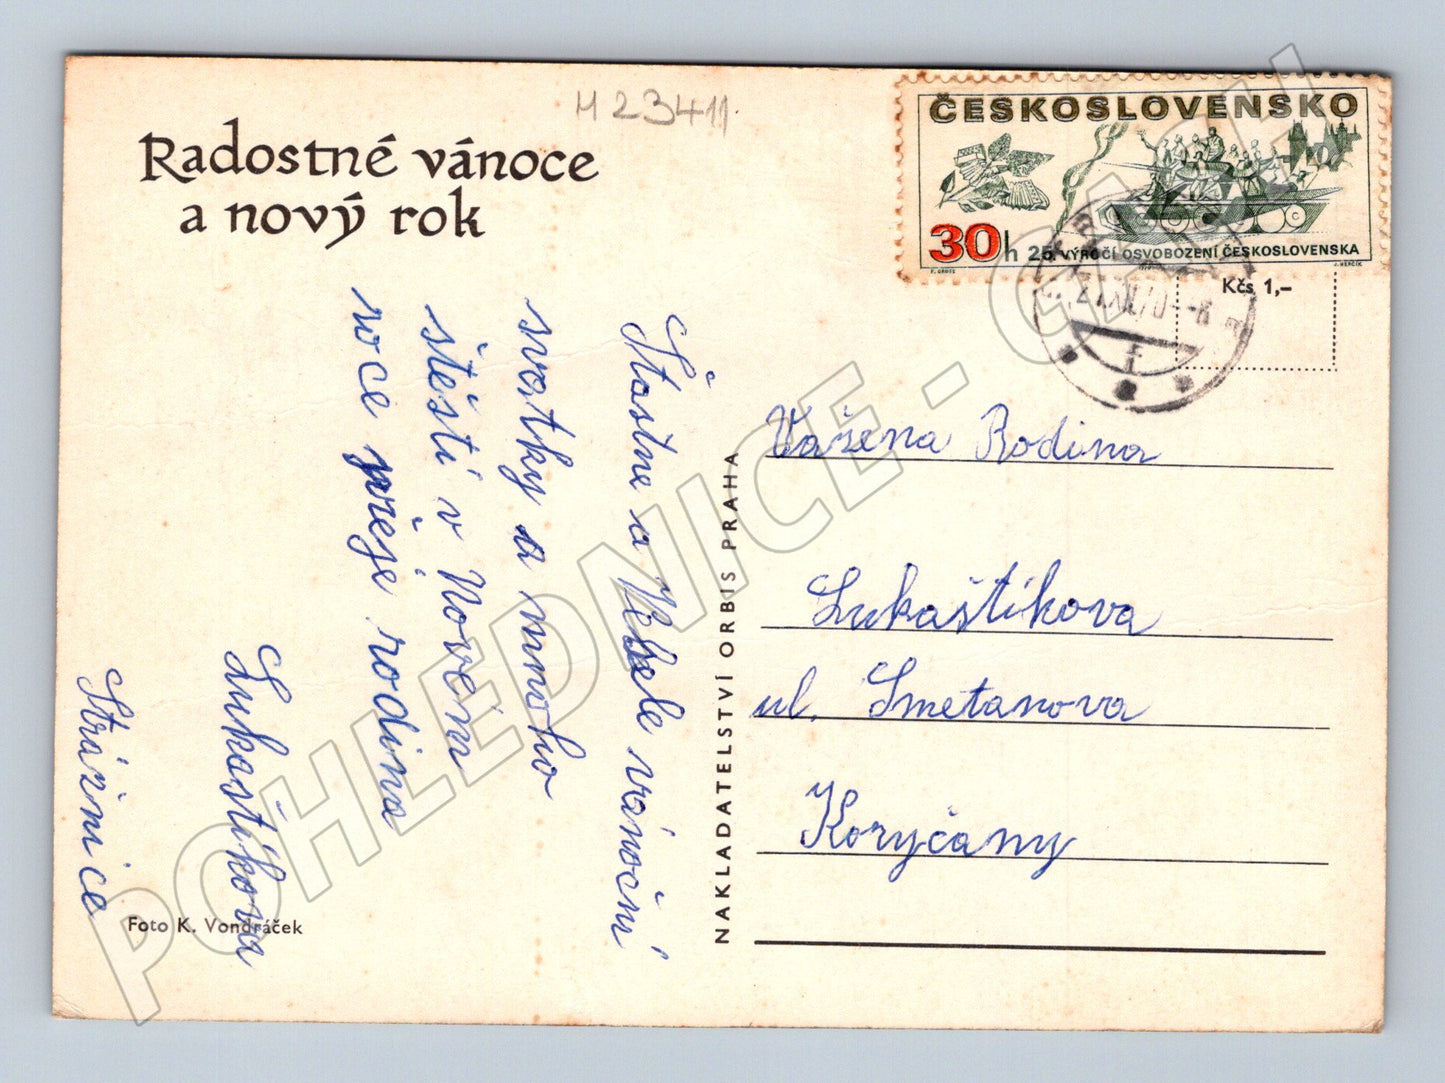 H 23411.
Radostné vánoce
a nový rok
ČESKOSLOVENSKO
30h 25. VÝROČÍ OSVOBOZENÍ ČESKOSLOVENSKA
Kčs 1,–
Štastne a Vesele vánoční
svatky a mnoho
štěstí v Novém
roce přeje rodina
Lukaštíkova
Strážnice
Foto K. Vondráček
NAKLADATELSTVÍ ORBIS PRAHA
Važena Rodina
Lukaštíkova
ul. Smetanova
Koryčany
POHLEDNICE - CASH